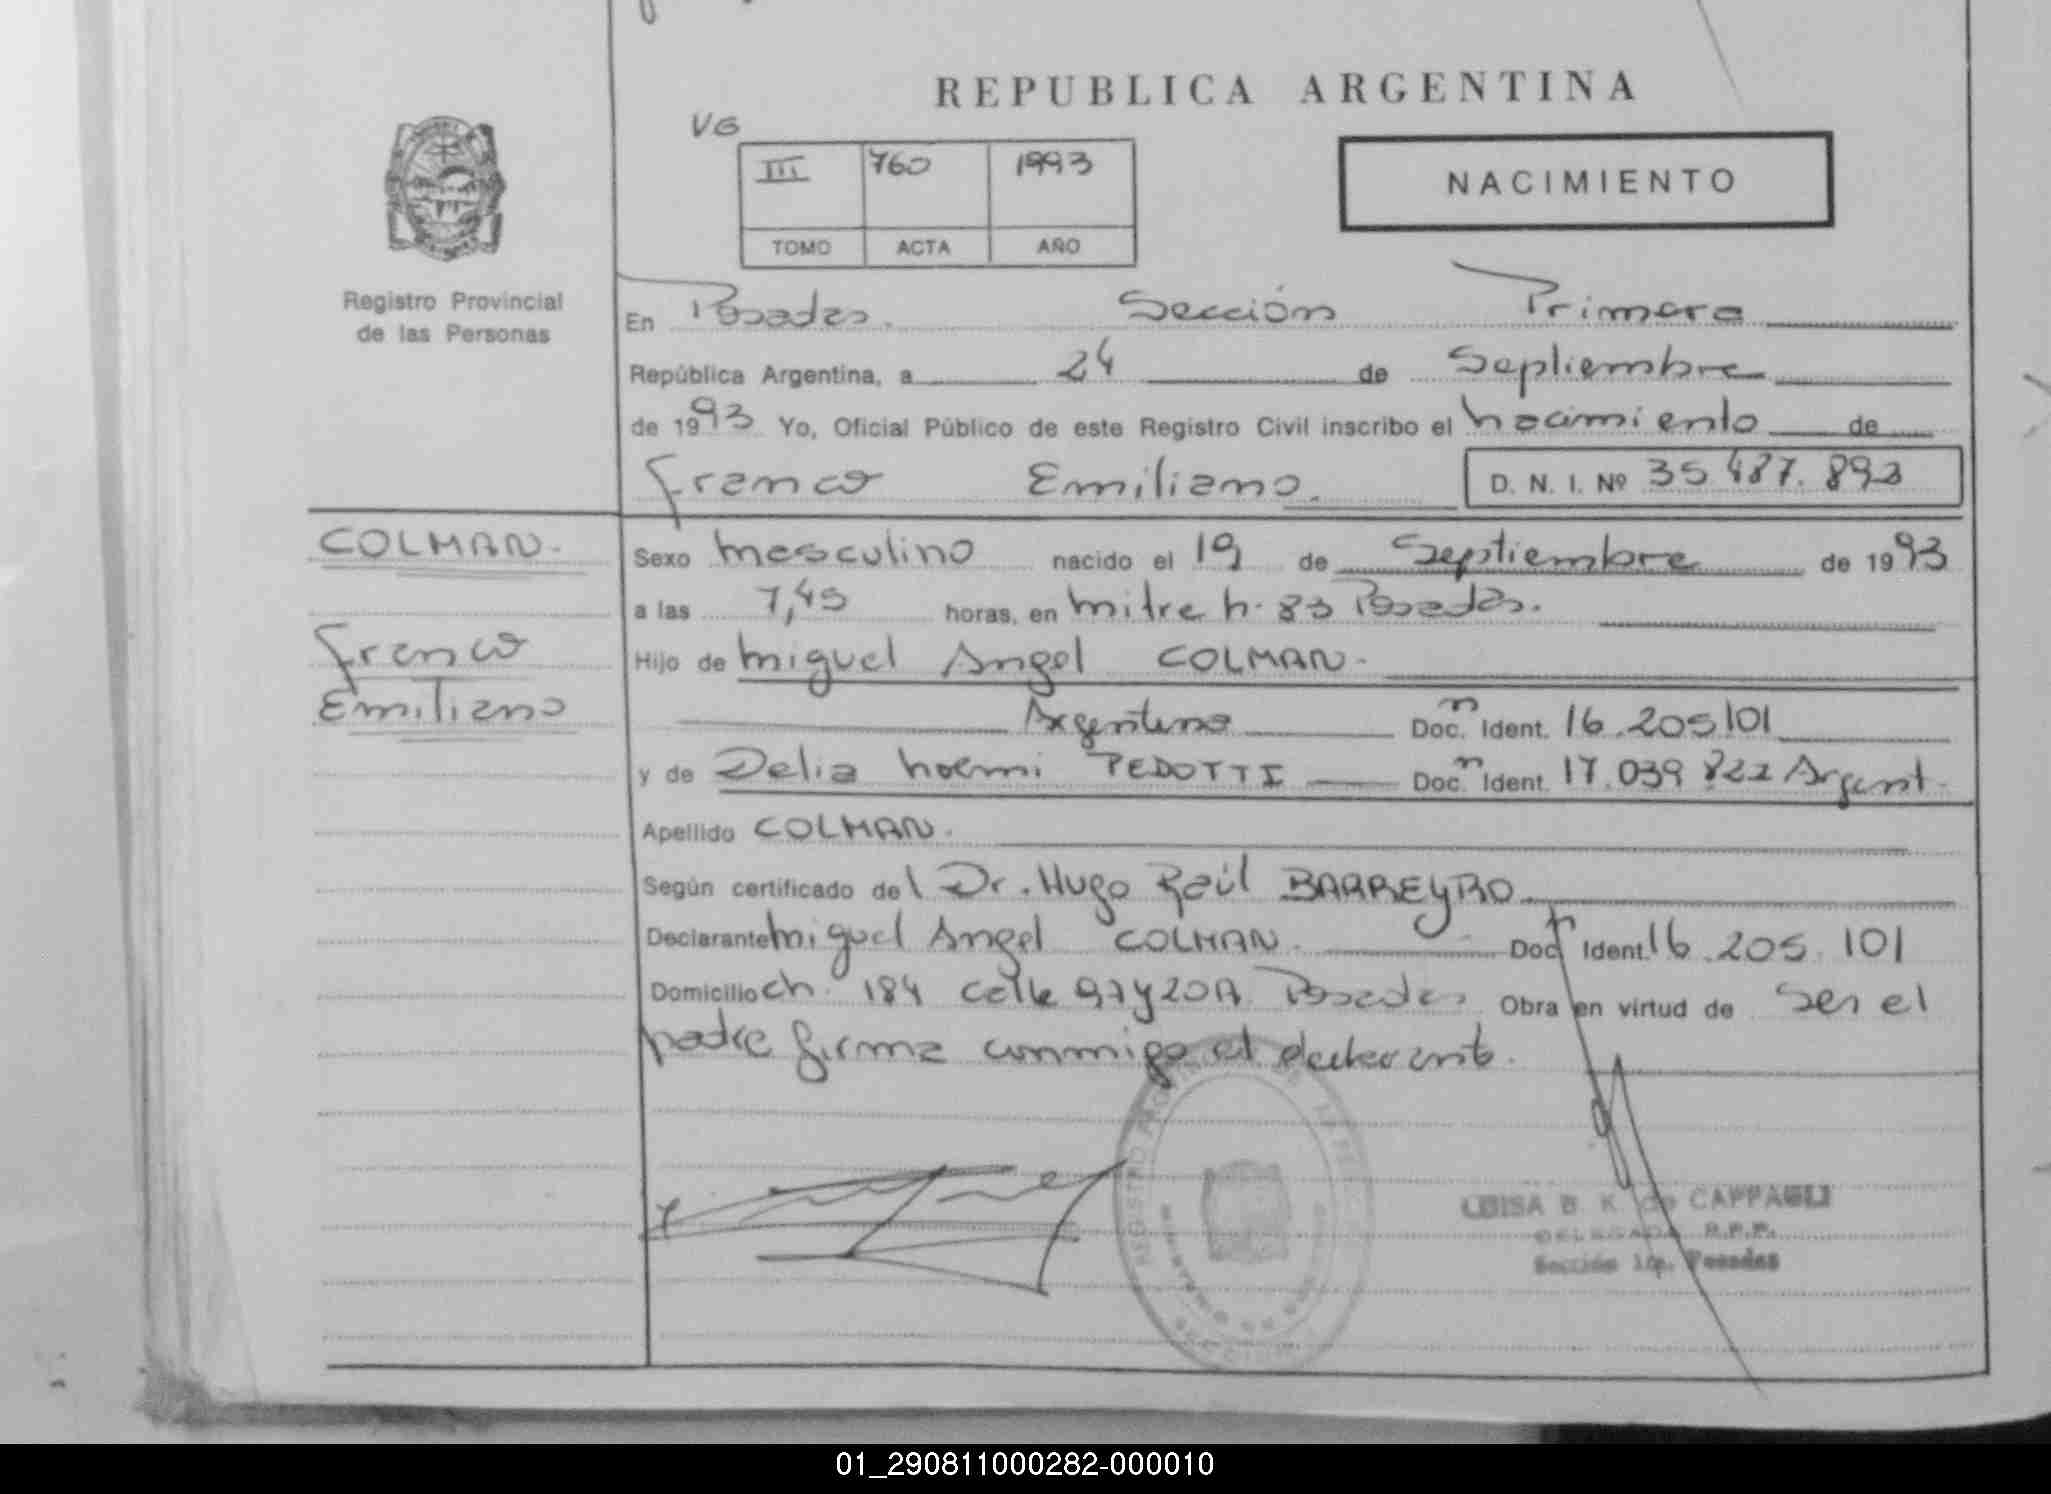 REPUBLICA ARGENTINA
VG
III 760 1993
TOMO ACTA AÑO
NACIMIENTO
Registro Provincial
de las Personas
En Posadas. Sección Primera
República Argentina, a 24 de Septiembre
de 1993 Yo, Oficial Público de este Registro Civil inscribo el nacimiento de
Franco Emiliano. D. N. I. Nº 35.487.893
COLMAN.
Franco
Emiliano
Sexo masculino nacido el 19 de Septiembre de 1993
a las 7,45 horas, en mitre n. 83 Posadas.
Hijo de miguel Angel COLMAN.
Argentino Doc. Ident. 16.205101
y de Delia noemi PEDOTTI Doc. Ident. 17.039.822 Argent.
Apellido COLMAN.
Según certificado del Dr. Hugo Raúl BARREYRO
Declarante miguel Angel COLMAN. Doc. Ident. 16.205.101
Domicilio ch. 184 calle 97y20A Posadas Obra en virtud de ser el
padre firma conmigo el declarante.
LUISA B. K. de CAPPAGLI
DELEGADA R.P.P.
Sección 1ra. Posadas
01_290811000282-000010